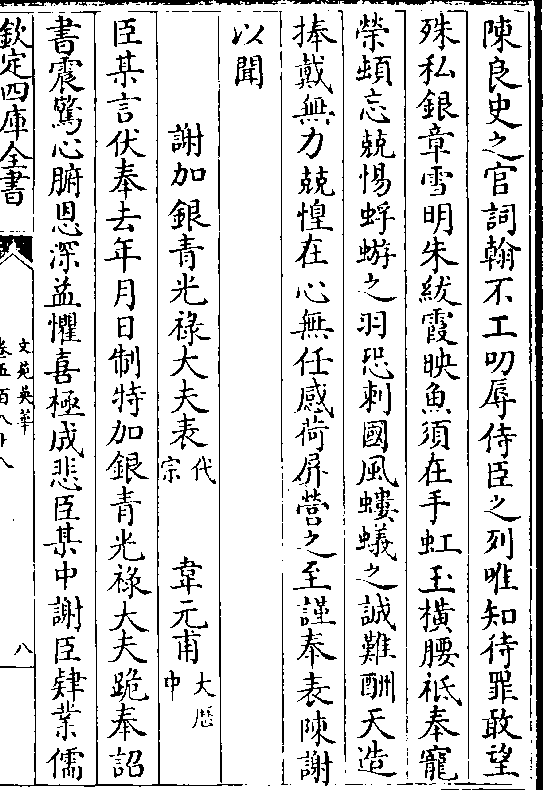 陳良史之官詞翰不工叨辱侍臣之列唯知待罪敢望
殊私銀章雪明朱紱霞映魚須在手虹玉橫腰祗奉寵
榮頓忘兢惕蜉蝣之羽恐刺國風螻蟻之誠難酬天造
捧戴無力兢惶在心無任感荷屏營之至謹奉表陳謝
以聞
謝加銀青光祿大夫表代宗 韋元甫大厯中
臣某言伏奉去年月日制特加銀青光祿大夫跪奉詔
書震驚心腑恩深益懼喜極成悲臣某中謝臣肄業儒
欽定四庫全書
文苑英華
卷五百八十八
八